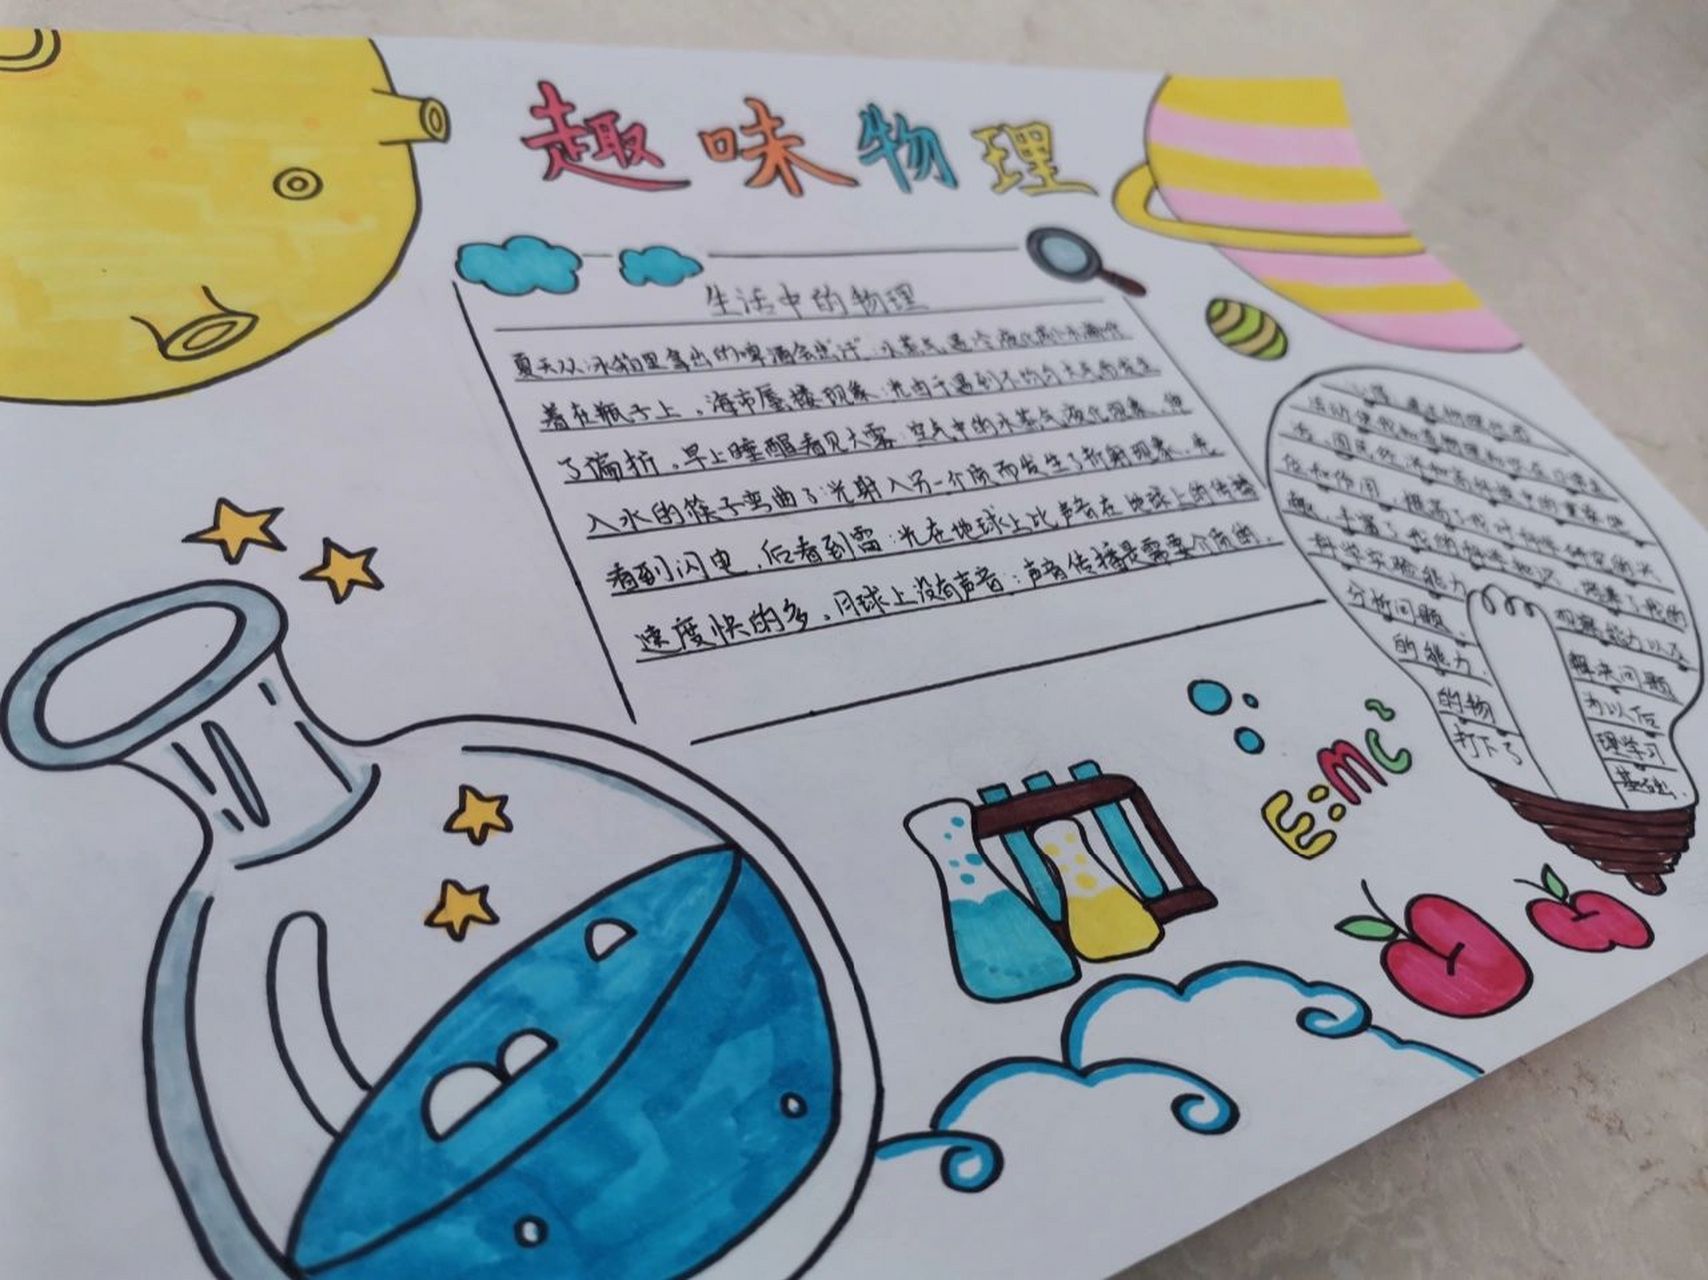 趣味物理
生活中的物理
夏天从冰箱里拿出的啤酒会出汗:水蒸气遇冷液化成小水滴附
着在瓶子上。海市蜃楼现象:光由于遇到不均匀大气而发生
了偏折。早上睡醒看见大雾:空气中的水蒸气液化现象。伸
入水的筷子弯曲了:光射入另一介质而发生了折射现象。先
看到闪电,后看到雷:光在地球上比声音在地球上的传播
速度快的多。月球上没有声音:声音传播是需要介质的。
E=mc²
通过物理
活动使我知道物理知识在日常生
国民经济和高科技中的重要地
位和作用,提高了我对科学研究的兴
趣,丰富了我的科学知识,培养了我的
科学实验能力 观察能力以及
分析问题, 解决问题
的能力, 为以后
的物 理学习
打下了 基础.